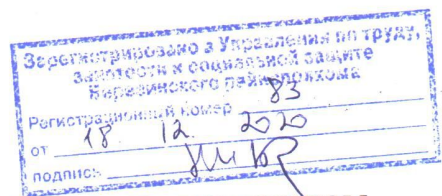 Зарегистрировано в Управлении по труду,
занятости и социальной защите
райисполкома
Регистрационный номер 83
от 18 12 2020
подпись